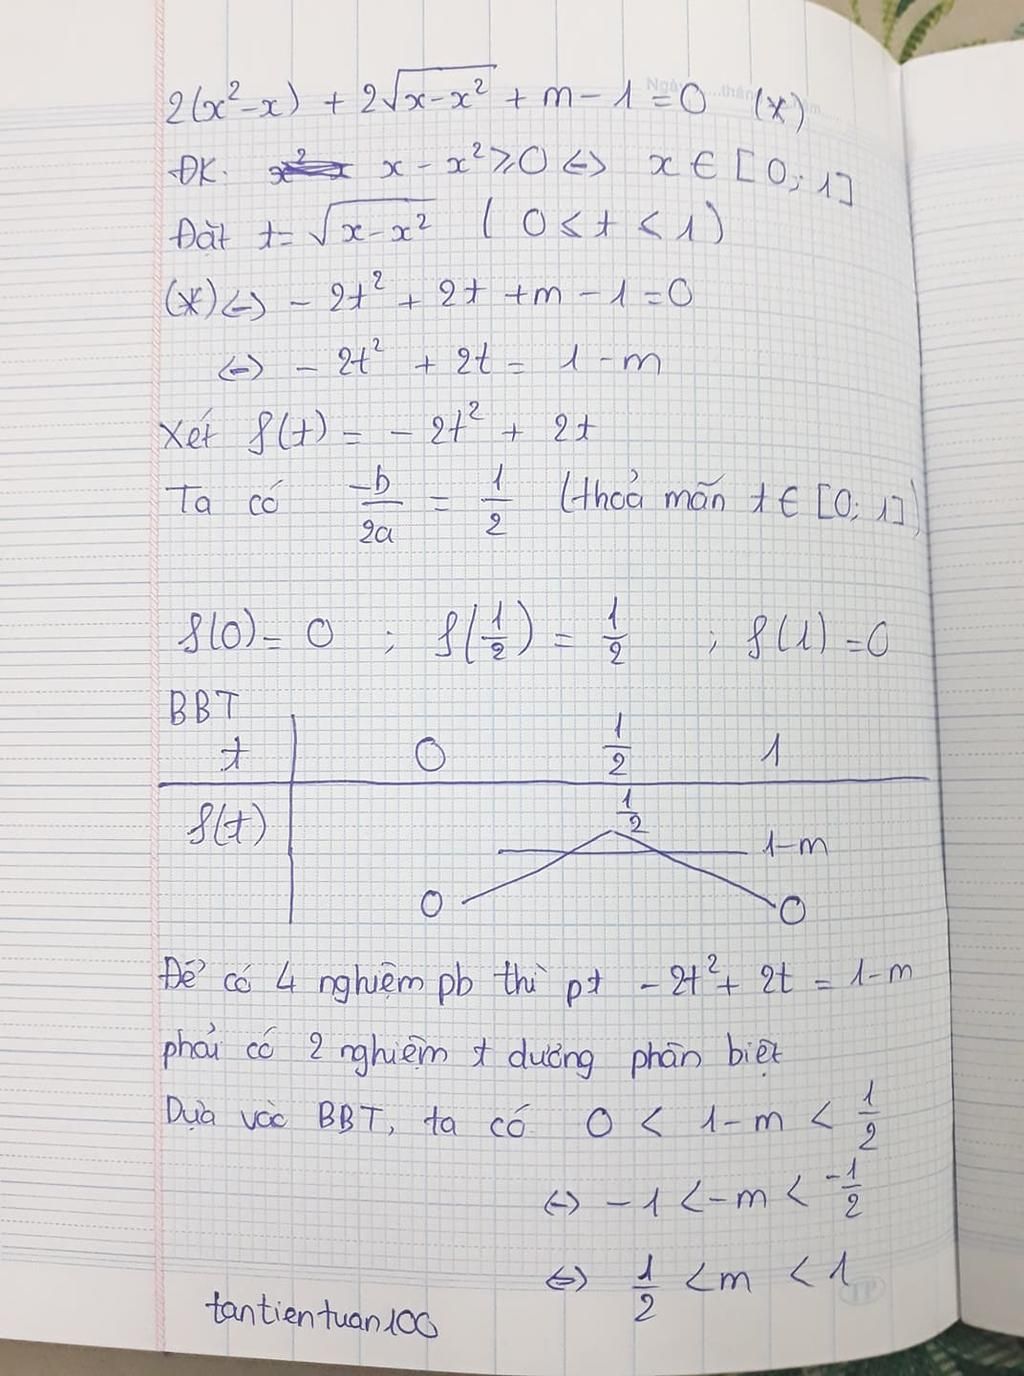 2(x²-x) + 2√(x-x²) + m - 1 = 0 (*)
ĐK. x - x² ≥ 0 <=> x ∈ [0; 1]
Đặt t = √(x-x²) ( 0 ≤ t < 1 )
(*) <=> - 2t² + 2t + m - 1 = 0
<=> - 2t² + 2t = 1 - m
Xét f(t) = - 2t² + 2t
Ta có -b/2a = 1/2 (thoả mãn t ∈ [0; 1])
f(0) = 0 ; f(1/2) = 1/2 ; f(1) = 0
BBT
t 0 1/2 1
f(t) 1/2
1-m
0 0
Để có 4 nghiệm pb thì pt - 2t² + 2t = 1-m
phải có 2 nghiệm t dương phân biệt
Dựa vào BBT, ta có 0 < 1-m < 1/2
<=> -1 < -m < -1/2
<=> 1/2 < m < 1
tantientuan100